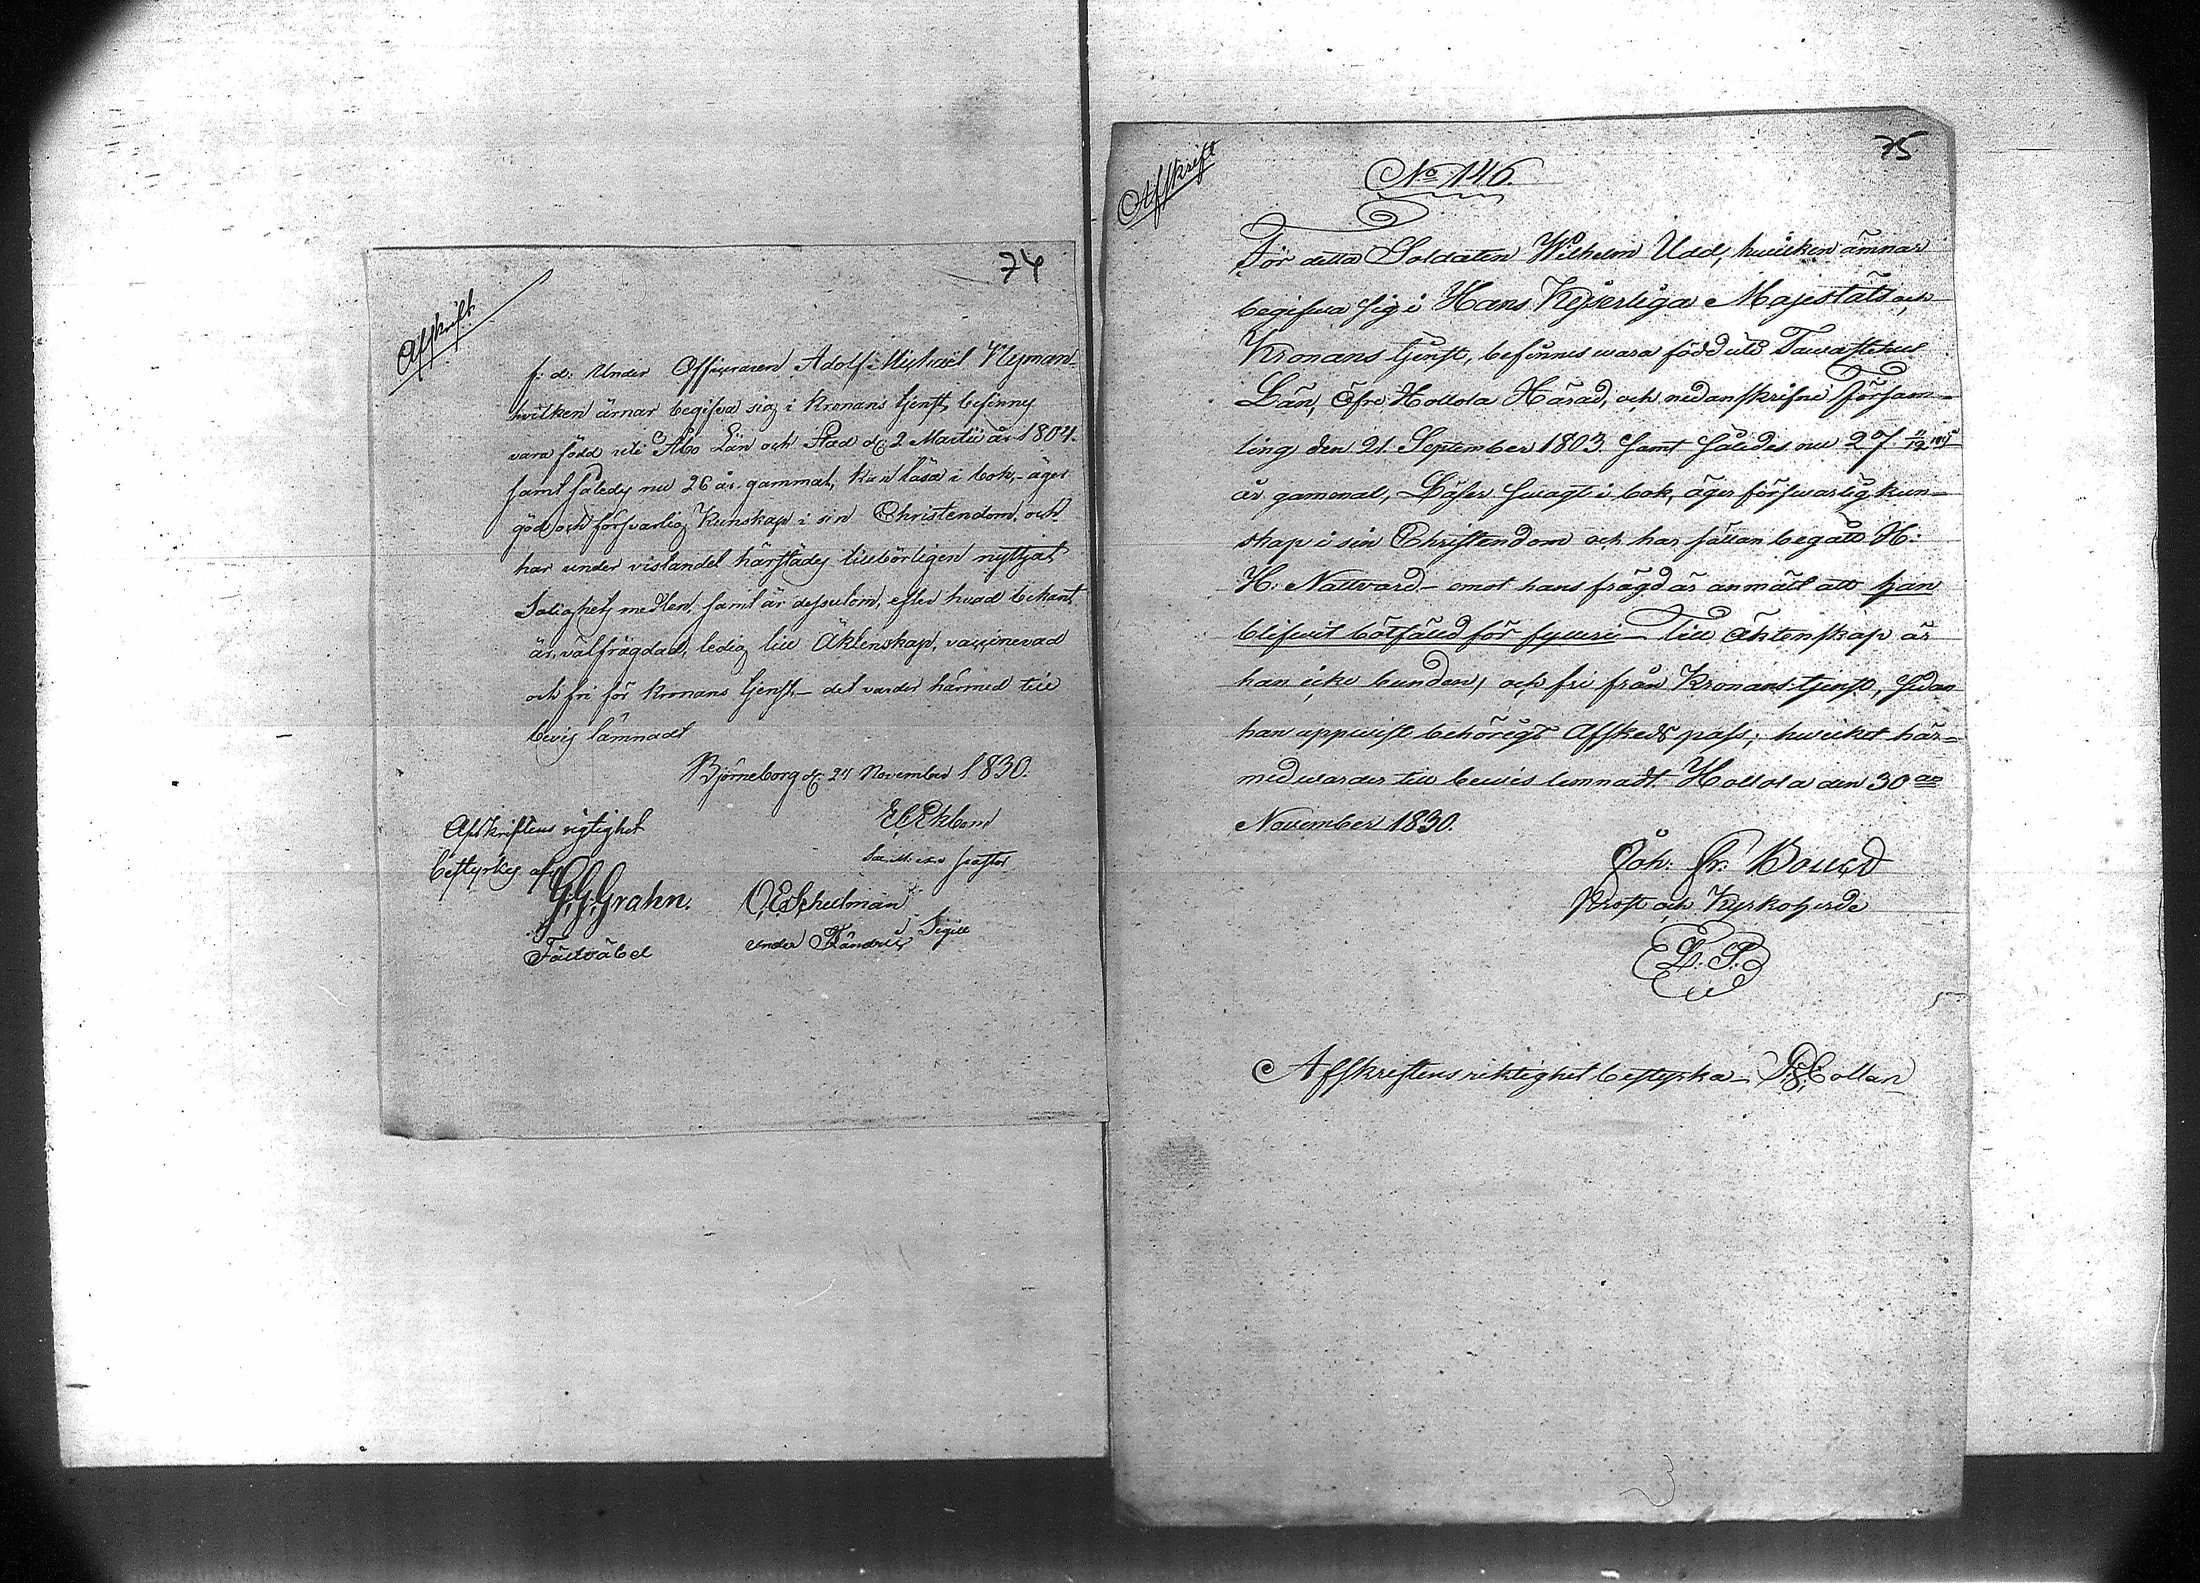 74
Afskrift
f: d: Under Officeraren Adolf Michaël Nyman
hvilken ärnar begifva sig i Kronans tjenst, befinnes
vara född uti Åbo Län och Stad d: 2 Martii år 1804.
samt således nu 26 år gammal, kan läsa i bok, äger
god och försvarlig Kunskap i sin Christendom, och
har under vistandet härstädes tillbörligen nyttjat
Salighets medlen, samt är dessutom, efter hvad bekant
är, välfrägdad, ledig till Äktenskap, vaccinerad
och fri för Kronans tjenst, – det varder härmed till
bevis lämnadt
Björneborg d: 24 November 1830.
Afskriftens rigtighet
bestyrkes af
G. G. Grahn.
Fältväbel
Ekbom
pastor
O. E. Schulman
under Kändrick
Sigill
75
Afskrift
No 146.
För detta Soldaten Wilhelm Udd, hwilken ämnar
begifwa sig i Hans Kejserliga Majestäts och
Kronans tjenst, befinnes wara född uti Tawastehus
Län, Öfre Hollola Härad, och nedanskrifne Församling
ling den 21. September 1803. samt således nu 27
år gammal, Läser swagt i bok, äger förswarlig kun-
skap i sin Christendom och har sällan begått H:
H: Nattvard – emot hans frägd är anmält att han
blifwit bötfäld för fylleri – Till Äktenskap är
han icke bunden, och fri från Kronans tjenst, sedan
han uppwist behörigt Afskeds pass; hwilket här-
med warder till bewis lemnadt. Hollola den 30de
November 1830.
Joh: Fr: Boucht
Prost och Kyrkoherde
L. S.
Afskriftens riktighet bestyrka – Collan